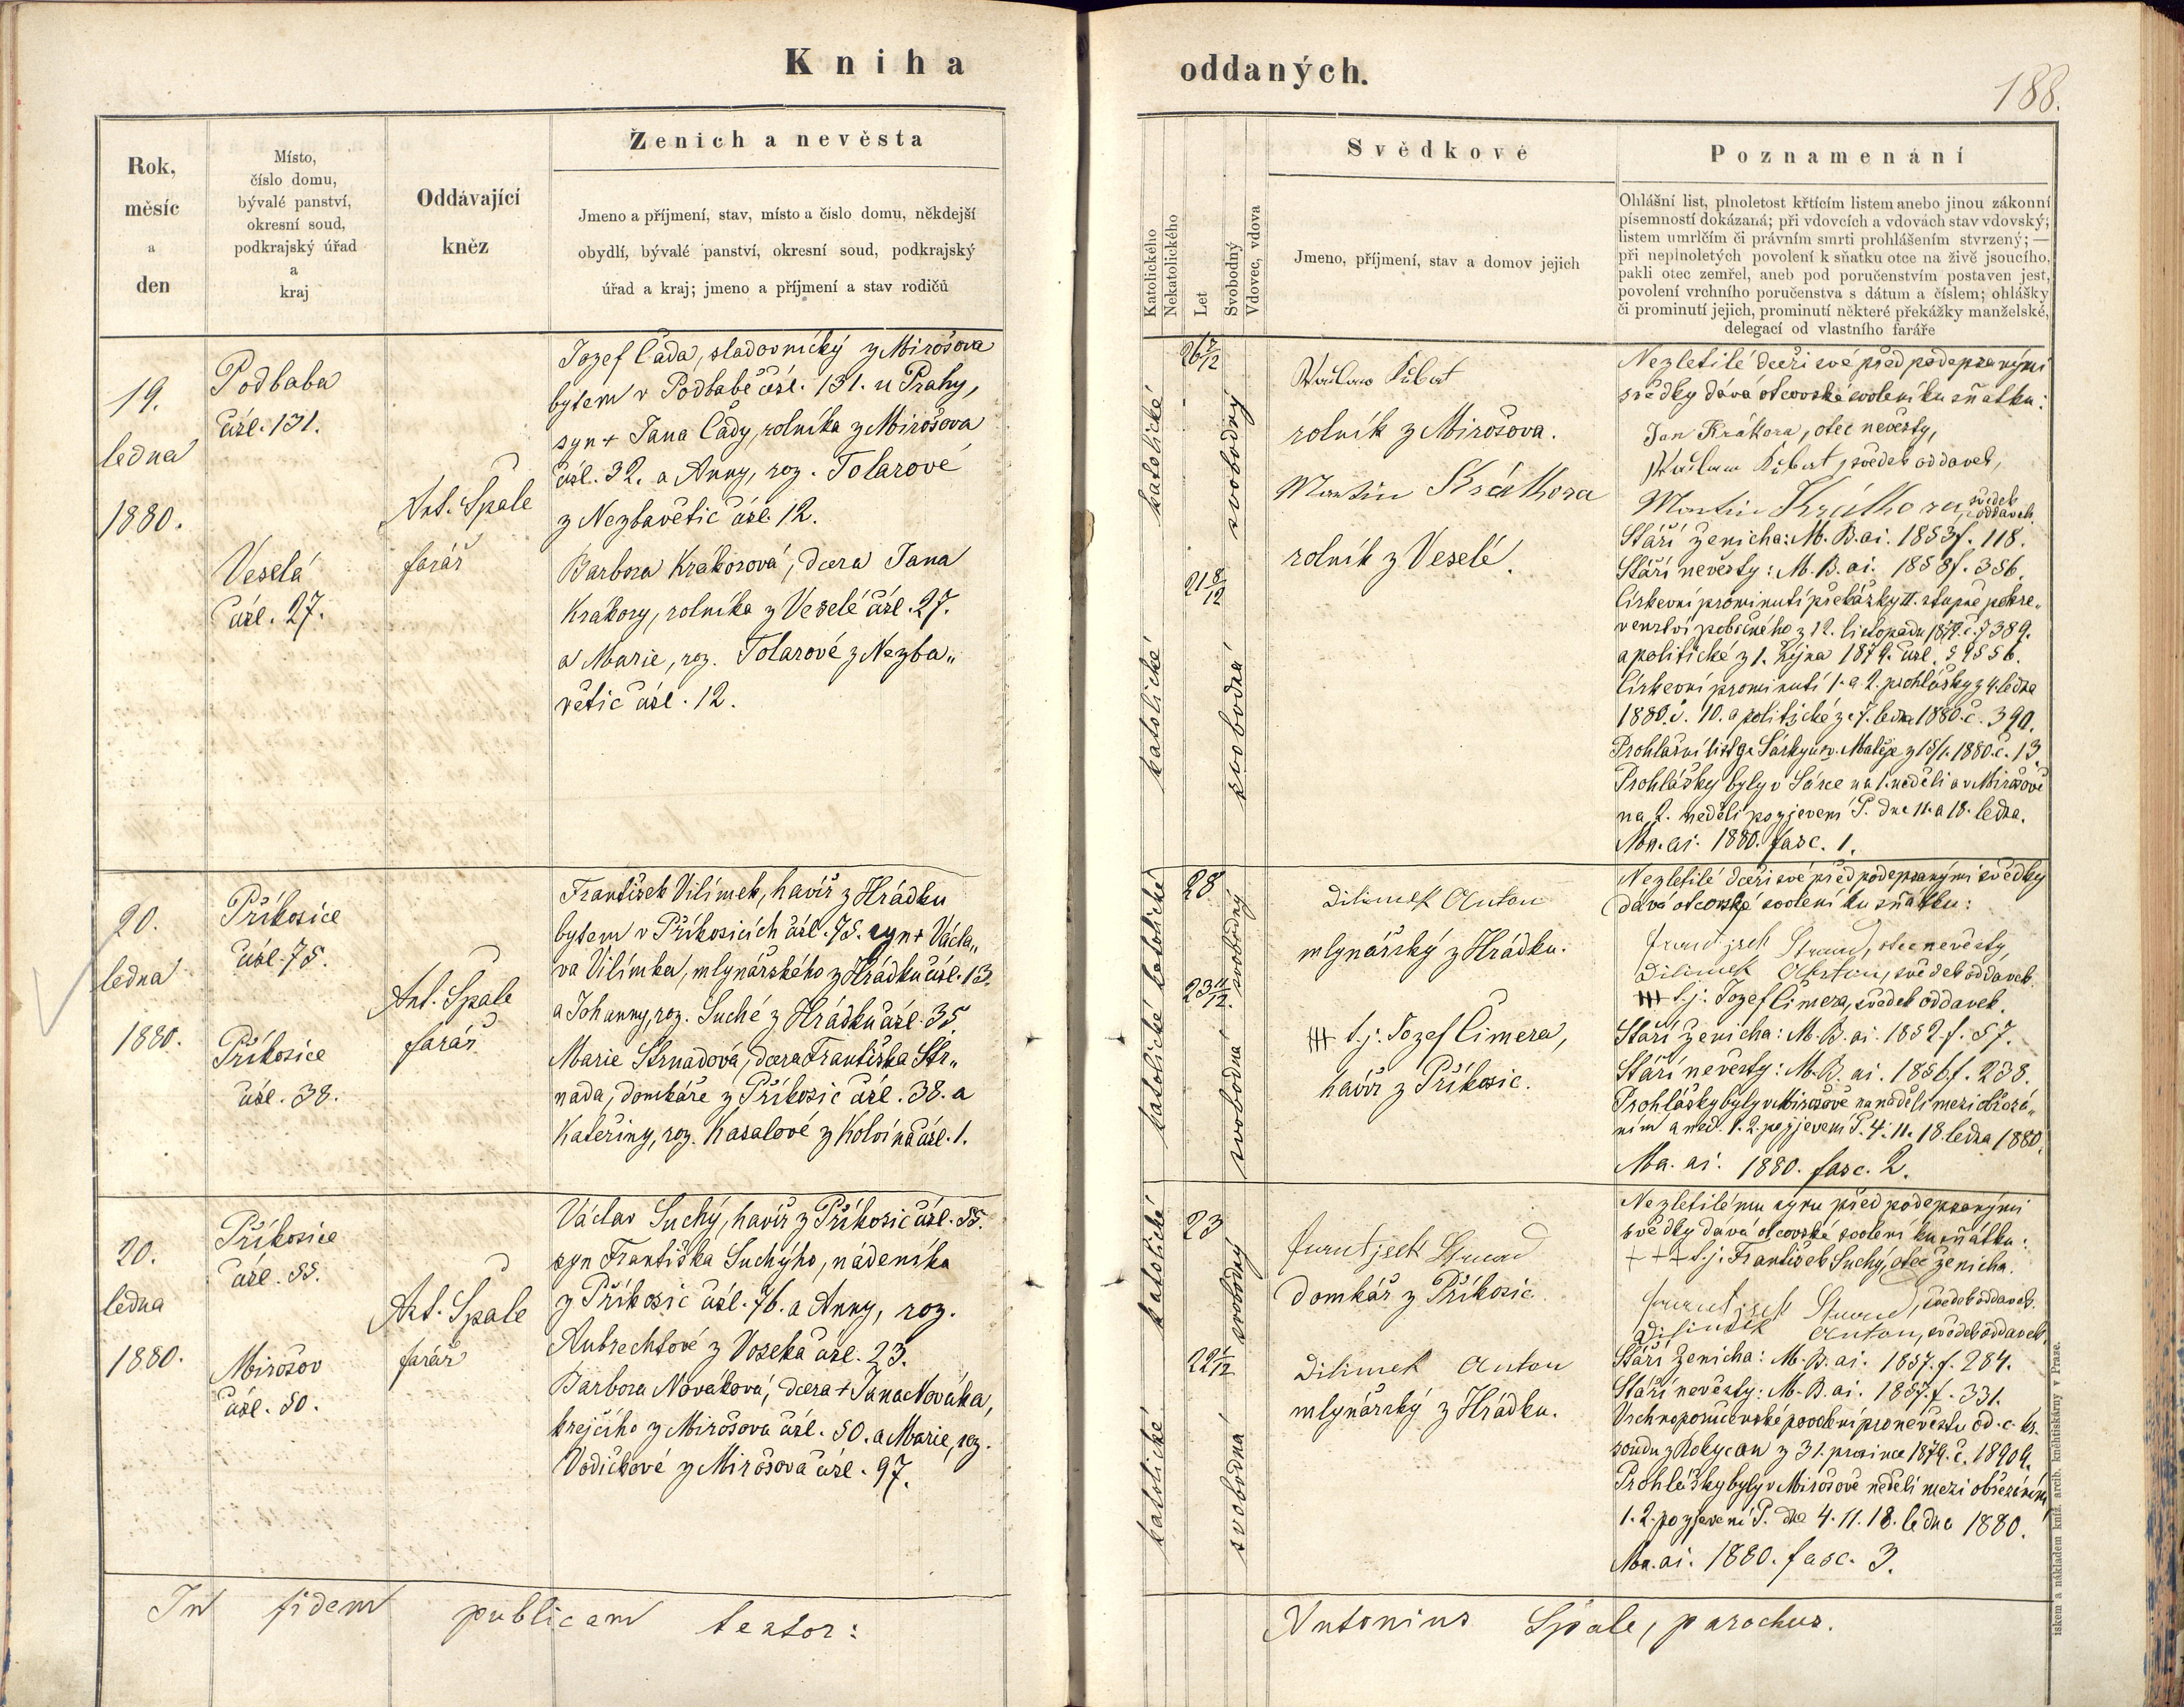 Kniha oddaných.
188.
Rok,
měsíc
a
den
Místo,
číslo domu,
bývalé panství,
okresní soud,
podkrajský úřad
a
kraj
Oddávající
kněz
Ženich a nevěsta
Jmeno a příjmení, stav, místo a číslo domu, někdejší
obydlí, bývalé panství, okresní soud, podkrajský
úřad a kraj; jmeno a příjmení a stav rodičů
Katolického
Nekatolického
Let
Svobodný
Vdovec, vdova
Svědkové
Jmeno, příjmení, stav a domov jejich
Poznamenání
Ohlášní list, plnoletost křtícím listem anebo jinou zákonní
písemností dokázaná; při vdovcích a vdovách stav vdovský;
listem umrlčím či právním smrti prohlášením stvrzený; —
při neplnoletých povolení k sňatku otce na živě jsoucího,
pakli otec zemřel, aneb pod poručenstvím postaven jest,
povolení vrchního poručenstva s dátum a číslem; ohlášky
či prominutí jejich, prominutí některé překážky manželské,
delegací od vlastního faráře
19.
ledna
1880.
Podbaba
čísl. 131.
Veselá
čísl. 27.
Ant. Špale
farář
Jozef Čada, sladovnický z Mirošova
bytem v Podbabě čísl. 131. u Prahy,
syn + Jana Čady, rolníka z Mirošova
čísl. 32. a Anny, roz. Tolarové
z Nezbavětic čísl. 12.
Barbora Krákorová, dcera Jana
Krákory, rolníka z Veselé čísl. 27.
a Marie, roz. Tolarové z Nezba„
větic čísl. 12.
katolické
26 7/12
svobodný
katolické
21 8/12
svobodná
Václav Kubát
rolník z Mirošova.
Martin Krákora
rolník z Veselé.
Nezletilé dceři své před podepsanými
svědky dává otcovské svolení ku sňatku:
Jan Krákora, otec nevěsty,
Václav Kubát, svědek oddavek,
Martin Krákora, svědek oddavek.
Stáří ženicha: M. B. ai. 1853 f. 118.
Stáří nevěsty: M. B. ai. 1858 f. 356.
Církevní prominutí překážky II. stupně pokre„
venství pobočného z 12. listopadu 1879. č. 7389.
a politické z 1. října 1879. čísl. 59556.
Církevní prominutí 1. a 2. prohlášky z 4. ledna
1880. č. 10. a politické ze 7. ledna 1880. č. 390.
Prohlašní list ze Šárky u sv. Matěje z 18/1. 1880. č. 13.
Prohlášky byly v Šárce na 1. neděli a v Mirošově
na 2. neděli po zjevení P. dne 11. a 18. ledna.
Mon. ai. 1880. fasc. 1.
20.
ledna
1880.
Příkosice
čísl. 75.
Příkosice
čísl. 38.
Ant. Špale
farář
František Vilímek, havíř z Hrádku
bytem v Příkosicích čísl. 75. syn + Václa„
va Vilímka, mlynářského z Hrádku čísl. 13.
a Johanny, roz. Suché z Hrádku čísl. 35.
Marie Strnadová, dcera Františka Str„
nada, domkáře z Příkosic čísl. 38. a
Kateřiny, roz. Kasalové z Kolvína čísl. 1.
katolické
28
svobodný
katolické
23 11/12
svobodná
Vilimek Anton
mlynářský z Hrádku.
+++ t. j. Jozef Čimera,
havíř z Příkosic.
Nezletilé dceři své před podepsanými svědky
dává otcovské svolení ku sňatku:
Frantjsek Strnad, otec nevěsty,
Vilimek Anton, svědek oddavek.
+++ t. j. Jozef Čimera, svědek oddavek.
Stáří ženicha: M. B. ai. 1852. f. 57.
Stáří nevěsty: M. B. ai. 1856 f. 238.
Prohlášky byly v Mirošově na neděli mezi obřezá„
ním a ned. 1. 2. po zjevení P. 4. 11. 18. ledna 1880.
Mon. ai. 1880. fasc. 2.
20.
ledna
1880.
Příkosice
čísl. 55.
Mirošov
čísl. 50.
Ant. Špale
farář
Václav Suchý, havíř z Příkosic čísl. 55.
syn Františka Suchýho, nádeníka
z Příkosic čísl. 76. a Anny, roz.
Aubrechtové z Voseka čísl. 23.
Barbora Nováková, dcera + Jana Nováka,
krejčího z Mirošova čísl. 50. a Marie, roz.
Vodičkové z Mirošova čísl. 97.
katolické
23
svobodný
katolické
22 1/12
svobodná
Frantjsek Strnad
domkář z Příkosic.
Vilimek Anton
mlynářský z Hrádku.
Nezletilému synu před podepsanými
svědky dává otcovské svolení ku sňatku:
+ + + t. j. František Suchý, otec ženicha.
Frantjsek Strnad, svědek oddavek.
Vilimek Anton, svědek oddavek.
Stáří ženicha: M. B. ai. 1857. f. 284.
Stáří nevěsty: M. B. ai. 1857. f. 331.
Vrchnoporučenské povolení pro nevěstu od c. kr.
soudu z Rokycan z 31. prosince 1879. č. 18909.
Prohlášky byly v Mirošově neděli mezi obřezáním,
1. 2. po zjevení P. dne 4. 11. 18. ledna 1880.
Mon. ai. 1880. fasc. 3.
In fidem publicam testor: Antonius Špale, parochus.
iskem a nákladem kníž. arcib. kněhtiskárny v Praze.